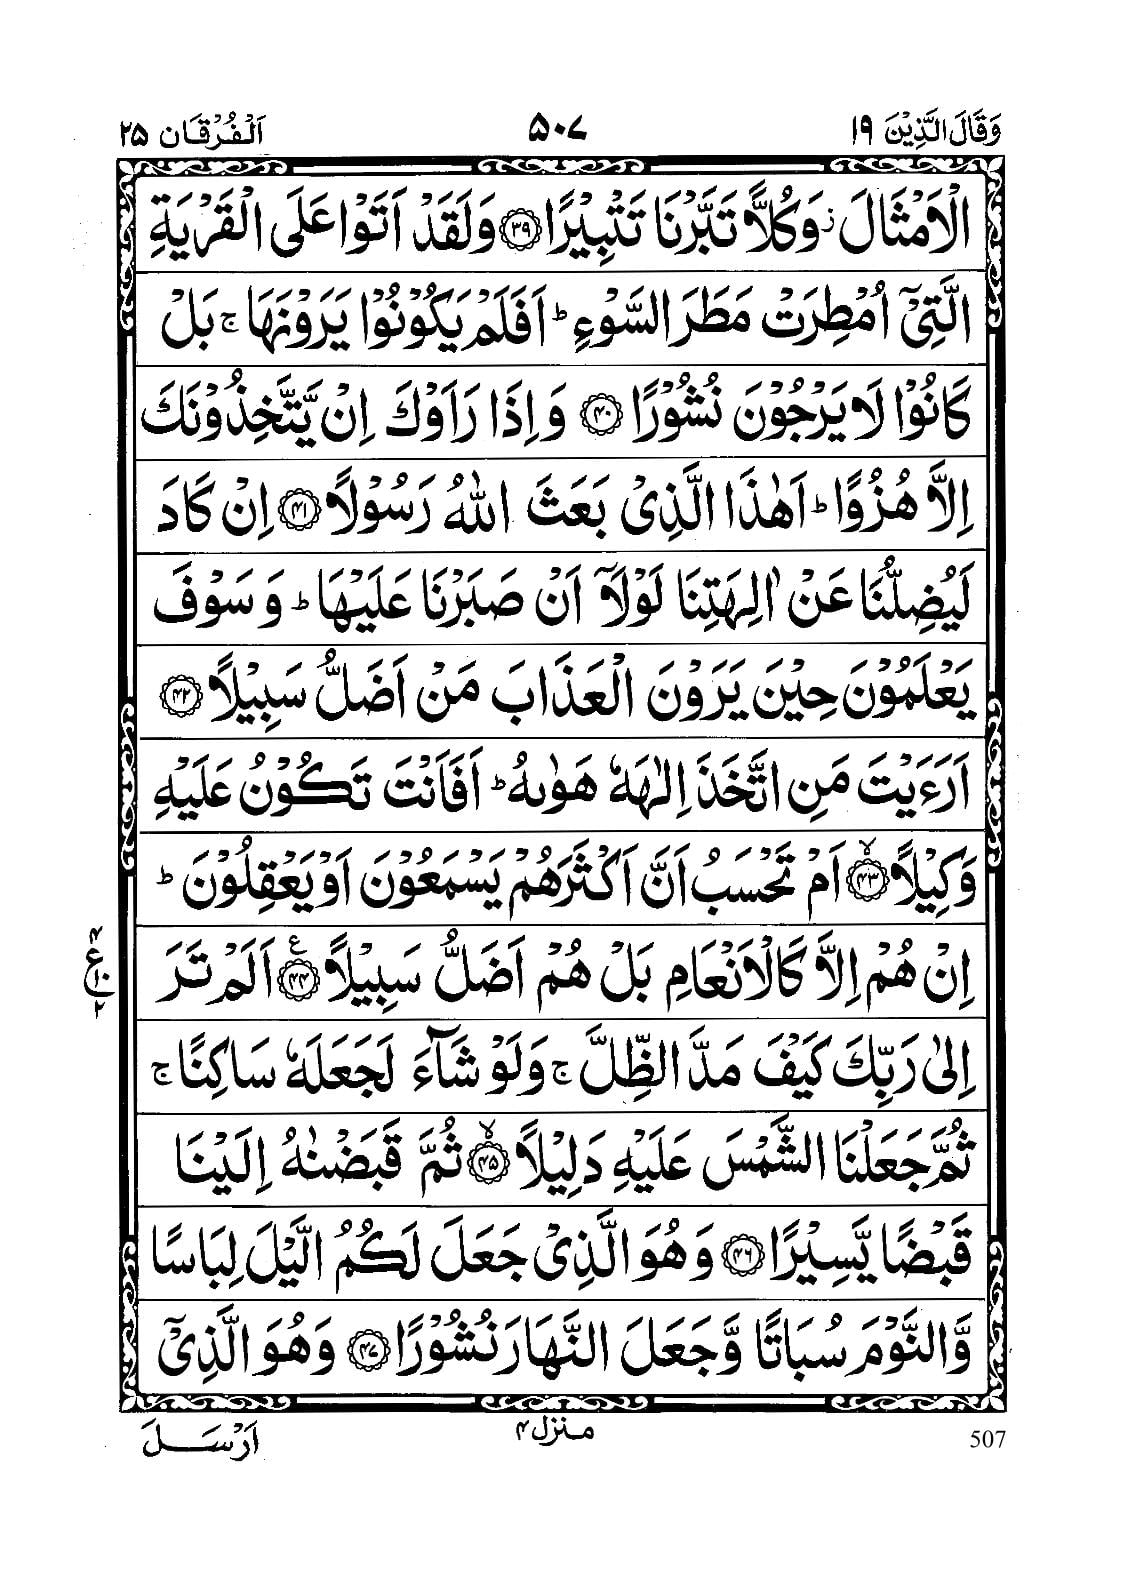 وَقَالَ الَّذِيْنَ ١٩ ٥٠٧ اَلْفُرْقَان ٢٥
الْاَمْثَالَ ز وَكُلًّا تَبَّرْنَا تَتْبِيْرًا ٣٩ وَلَقَدْ اَتَوْا عَلَى الْقَرْيَةِ
الَّتِيْٓ اُمْطِرَتْ مَطَرَ السَّوْءِ ط اَفَلَمْ يَكُوْنُوْا يَرَوْنَهَا ج بَلْ
كَانُوْا لَا يَرْجُوْنَ نُشُوْرًا ٤٠ وَاِذَا رَاَوْكَ اِنْ يَّتَّخِذُوْنَكَ
اِلَّا هُزُوًا ط اَهٰذَا الَّذِيْ بَعَثَ اللّٰهُ رَسُوْلًا ٤١ اِنْ كَادَ
لَيُضِلُّنَا عَنْ اٰلِهَتِنَا لَوْلَآ اَنْ صَبَرْنَا عَلَيْهَا ط وَسَوْفَ
يَعْلَمُوْنَ حِيْنَ يَرَوْنَ الْعَذَابَ مَنْ اَضَلُّ سَبِيْلًا ٤٢
اَرَءَيْتَ مَنِ اتَّخَذَ اِلٰهَهٗ هَوٰىهُ ط اَفَاَنْتَ تَكُوْنُ عَلَيْهِ
وَكِيْلًا ٤٣ لا اَمْ تَحْسَبُ اَنَّ اَكْثَرَهُمْ يَسْمَعُوْنَ اَوْ يَعْقِلُوْنَ ط
اِنْ هُمْ اِلَّا كَالْاَنْعَامِ بَلْ هُمْ اَضَلُّ سَبِيْلًا ٤٤ ع اَلَمْ تَرَ
٤ ع ١٠ ٢
اِلٰى رَبِّكَ كَيْفَ مَدَّ الظِّلَّ ج وَلَوْ شَآءَ لَجَعَلَهٗ سَاكِنًا ج
ثُمَّ جَعَلْنَا الشَّمْسَ عَلَيْهِ دَلِيْلًا ٤٥ لا ثُمَّ قَبَضْنٰهُ اِلَيْنَا
قَبْضًا يَّسِيْرًا ٤٦ وَهُوَ الَّذِيْ جَعَلَ لَكُمُ الَّيْلَ لِبَاسًا
وَّالنَّوْمَ سُبَاتًا وَّجَعَلَ النَّهَارَ نُشُوْرًا ٤٧ وَهُوَ الَّذِيْٓ
507 منزل ٤ اَرْسَلَ